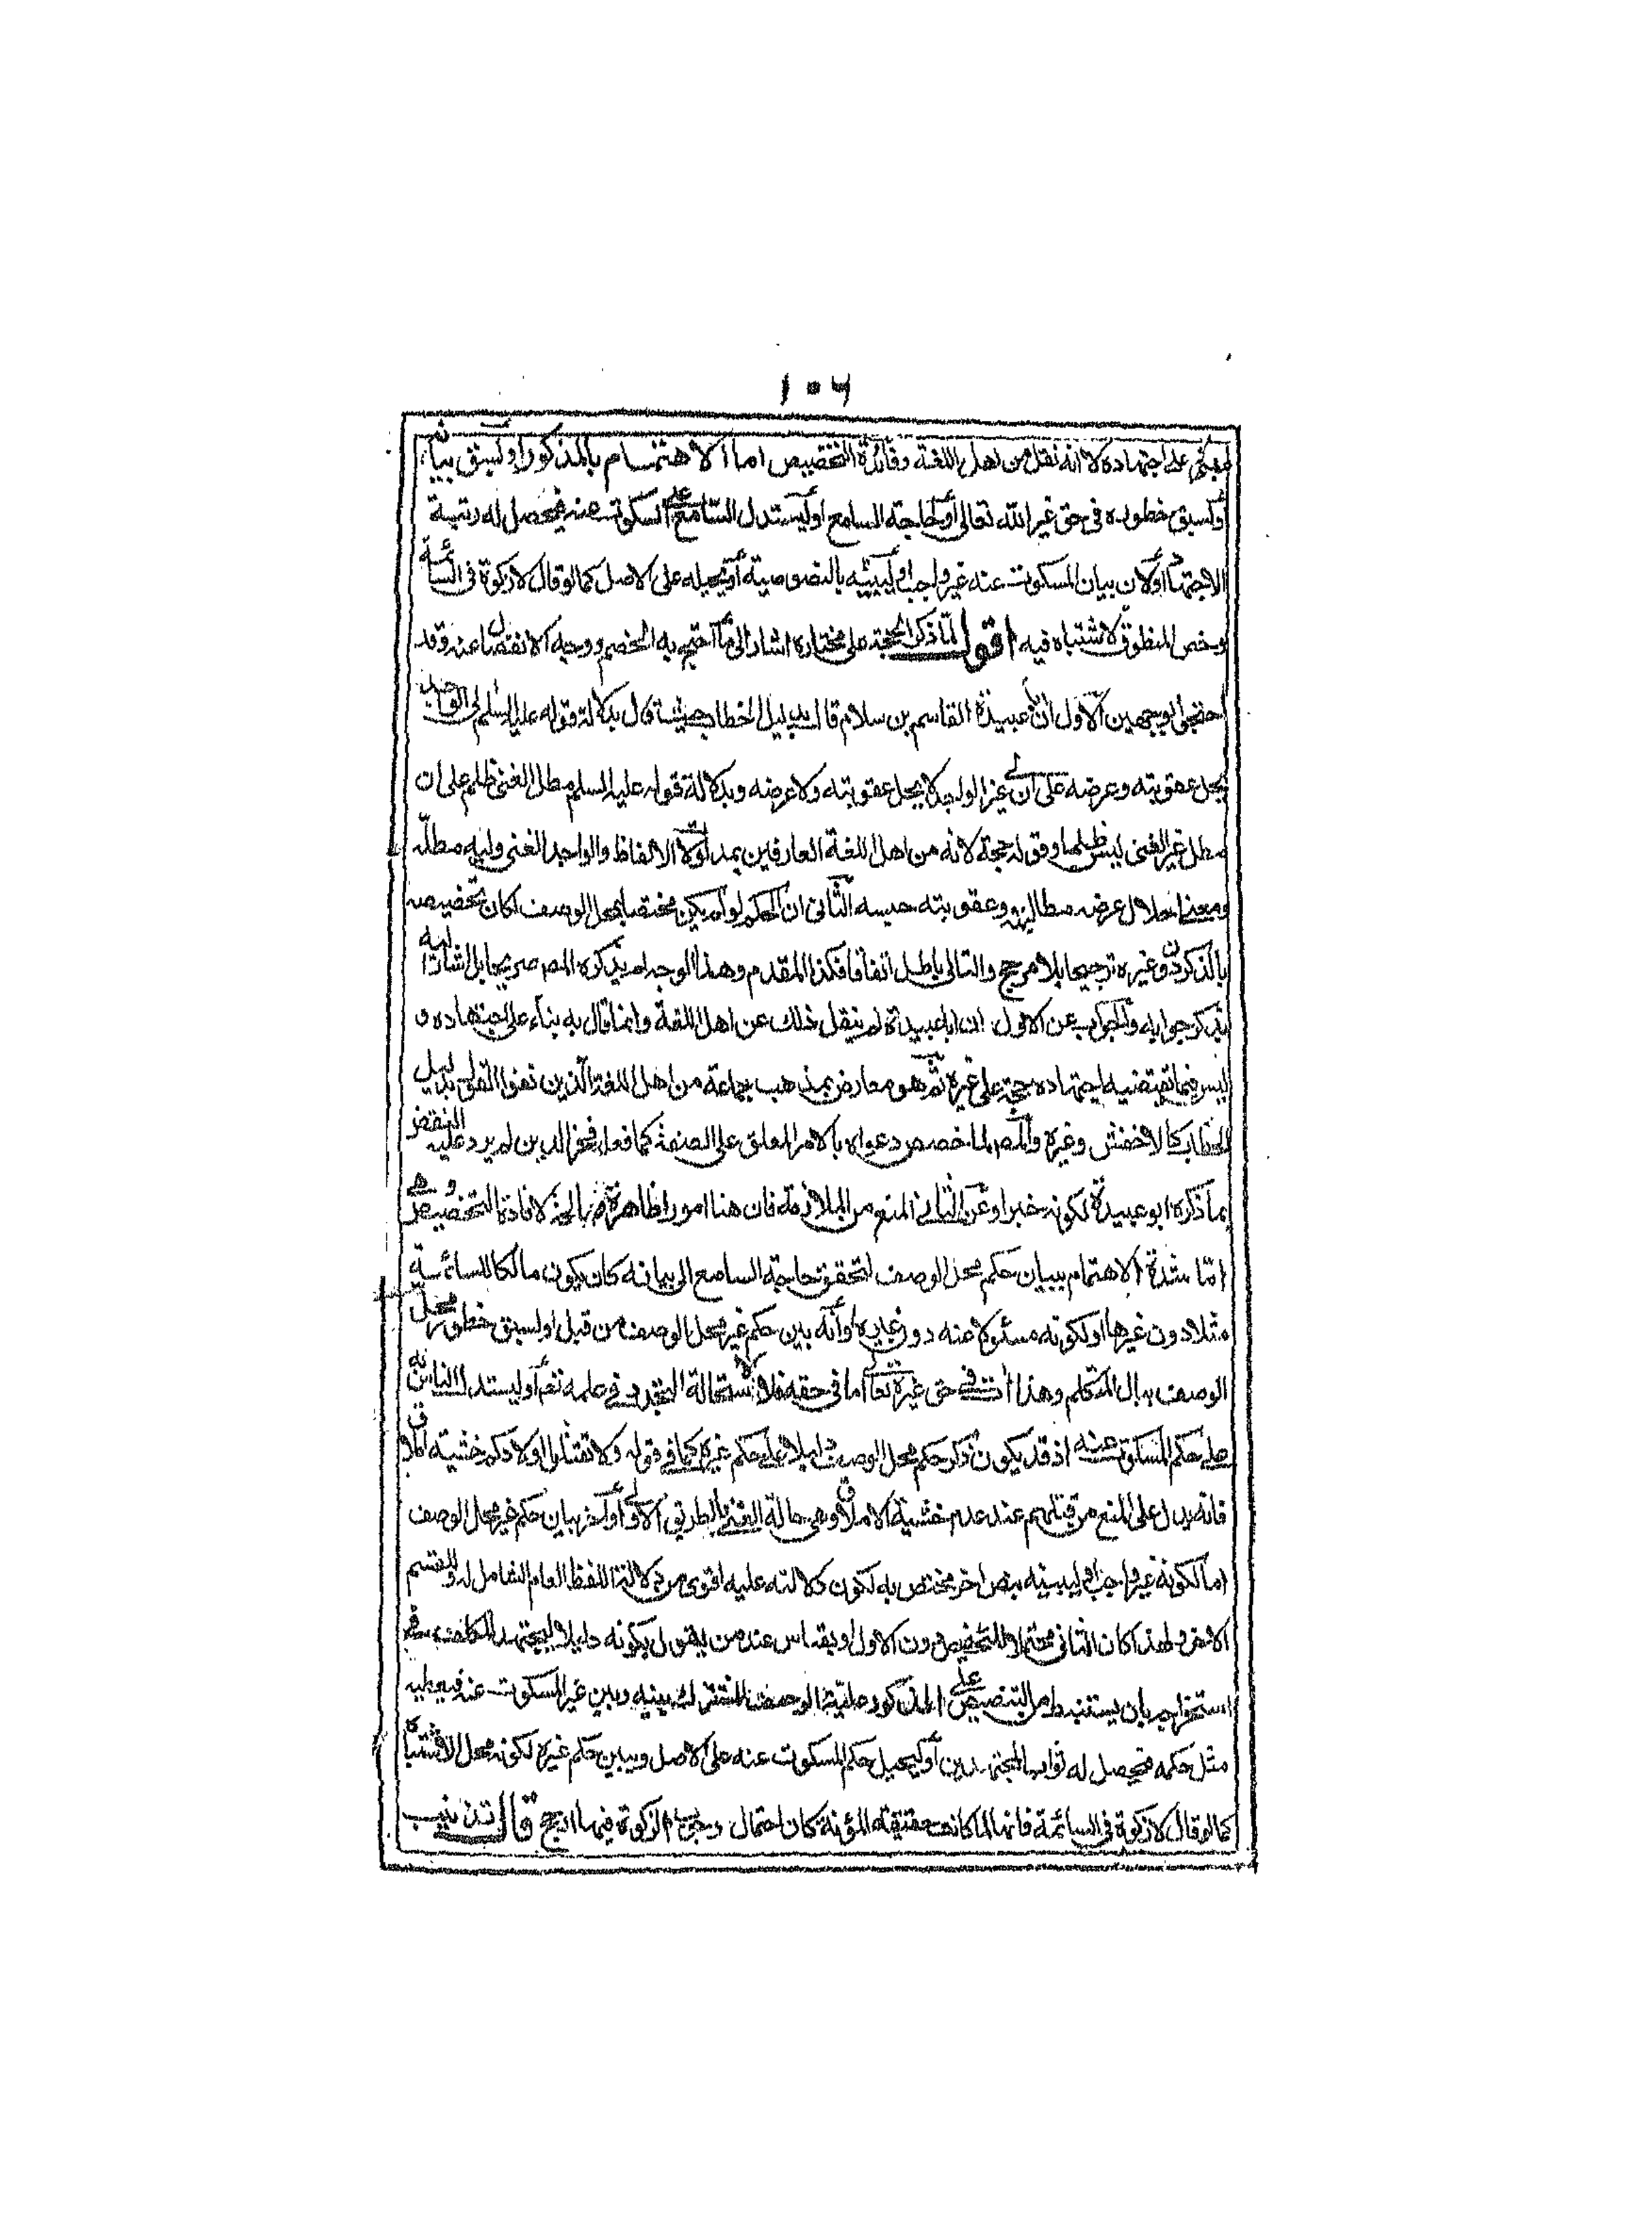 ١٠٦
مبني على اجتهاده لا انه نقل من اهل اللغة وفائدة التخصيص اما الاهتمام بالمذكور او لسبق بيانه
او لسبق خطوره في حق غير الله تعالى او لحاجة السامع او ليستدل السامع على السكوت عنه فيحصل له رتبة
الاجتهاد او لان بيان المسكوت عنه غير واجب او ليبينه بالنصوصية او يحيله على الاصل كما لو قال لا زكوة في السائمة
وخص المنطوق لاشتباه فيه اقول لما ذكر الحجة على مختاره اشار الى ما احتج به الخصم ووجه الانفصال عنه وقد
احتجوا بوجهين الاول ان ابا عبيدة القاسم بن سلام قال بدليل الخطاب حيث قال بدلالة قوله عليه السلم لي الواجد
يحل عقوبته وعرضه على ان لي غير الواجد لا يحل عقوبته ولا عرضه وبدلالة قوله عليه السلم مطل الغني ظلم على ان
مطل غير الغني ليس ظلما وقوله حجة لانه من اهل اللغة العارفين بمدلولات الالفاظ والواجد الغني وليه مطله
ومعنى احلال عرضه مطالبته وعقوبته حبسه الثاني ان الحكم لو لم يكن مختصا بمحل الوصف لكان تخصيصه
بالذكر دون غيره ترجيحا بلا مرجح والتالى باطل اتفاقا فكذا المقدم وهذا الوجه لم يذكره المصر صريحا بل اشار اليه
بذكر جوابه والجواب عن الاول ان ابا عبيدة لم ينقل ذلك عن اهل اللغة وانما قال به بناء على اجتهاده و
ليس فيما تقتضيه اجتهاده حجة على غيره ثم هو معارض بمذهب جماعة من اهل اللغة الذين نفوا القول بدليل
الخطاب كالاخفش وغيره والمصر لما خصص دعواه بالامر المعلق على الصفة كما فعله فخر الدين لم يرد عليه النقض
بما ذكره ابو عبيدة لكونه خبرا وعن الثاني المنع من الملازمة فان هنا امورا ظاهرة صالحة لافادة التخصيص وهي
اما شدة الاهتمام ببيان حكم محل الوصف لتحقق حاجة السامع الى بيانه كان يكون مالكا للسائمة
مثلا دون غيرها او لكونه مسئولا عنه دون غيره او انه بين حكم غير محل الوصف من قبل او لسبق خطور محل
الوصف ببال المتكلم وهذا ات في حق غيره تعالى اما في حقه فلا لاستحالة التجدد في علمه تعم او ليستدل السامع به
على حكم المسكوت عنه اذ قد يكون ذكر حكم محل الوصف دليلا على حكم غيره كما في قوله ولا تقتلوا اولادكم خشية املاق
فانه يدل على المنع من قتلهم عند عدم خشية الاملاق وهي حالة الغنى بالطريق الاولى او اخر بيان حكم غير محل الوصف
اما لكونه غير واجب او ليبينه بنص اخر مختص به لكون دلالته عليه اقوى من دلالة اللفظ العام الشامل له وللقسم
الاخر ولهذا كان الثاني محتملا للتخصيص دون الاول او بقياس عند من يقول بكونه دليلا ليجتهد المكلف في
استخراجه بان يستنبط من التنصيص على المذكور علية الوصف المشترك بينه وبين غير المسكوت عنه فيعطيه
مثل حكمه فيحصل له ثواب المجتهدين او ليحيل حكم المسكوت عنه على الاصل ويبين حكم غيره لكونه محل الاشتباه
كما لو قال لا زكوة في السائمة فانها لما كانت خفيفة المؤنة كان احتمال وجوب الزكوة فيها ارجح قال تذنيب